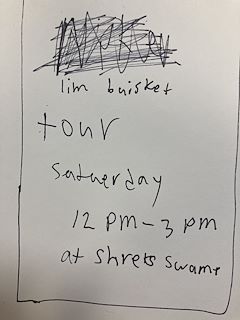 lim buisket
tour
Satuerday
12 pm - 3 pm
at Shreks swamp